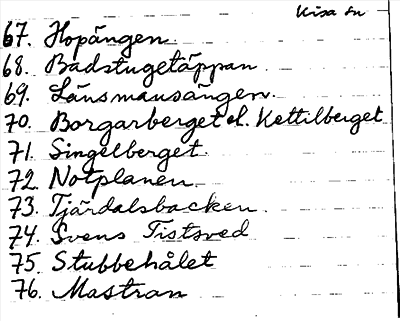 Kisa sn
67. Hopängen
68. Badstugetäppan
69. Länsmansängen.
70. Borgarberget el. Kettilberget
71. Singelberget.
72. Notplanen
73. Tjärdalsbacken
74. Svens Tistsved
75. Stubbehålet
76. Mastran